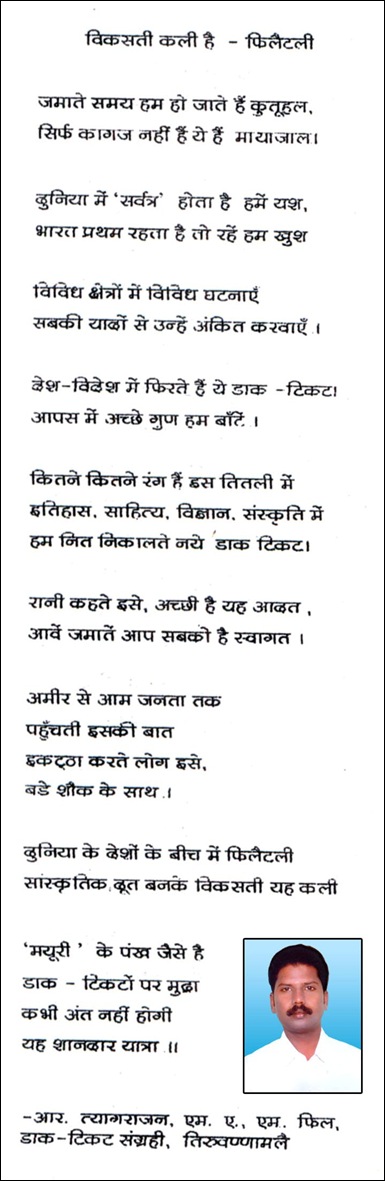 विकसती कली है - फिलैटली
जमाते समय हम हो जाते हैं कुतूहल,
सिर्फ कागज नहीं हैं ये हैं मायाजाल।
दुनिया में 'सर्वत्र' होता है हमें यश,
भारत प्रथम रहता है तो रहें हम खुश
विविध क्षेत्रों में विविध घटनाएँ
सबकी यादों से उन्हें अंकित करवाएँ ।
देश-विदेश में फिरते हैं ये डाक -टिकट।
आपस में अच्छे गुण हम बाँटें ।
कितने कितने रंग हैं इस तितली में
इतिहास, साहित्य, विज्ञान, संस्कृति में
हम नित निकालते नये डाक टिकट।
रानी कहते इसे, अच्छी है यह आदत ,
आवें जमातें आप सबको है स्वागत ।
अमीर से आम जनता तक
पहुँचती इसकी बात
इकट्ठा करते लोग इसे,
बडे शौक के साथ ।
दुनिया के देशों के बीच में फिलैटली
सांस्कृतिक दूत बनके विकसती यह कली
'मयूरी ' के पंख जैसे है
डाक - टिकटों पर मुद्रा
कभी अंत नहीं होगी
यह शानदार यात्रा ।।
-आर. त्यागराजन, एम. ए., एम. फिल,
डाक-टिकट संग्रही, तिरुवण्णामलै